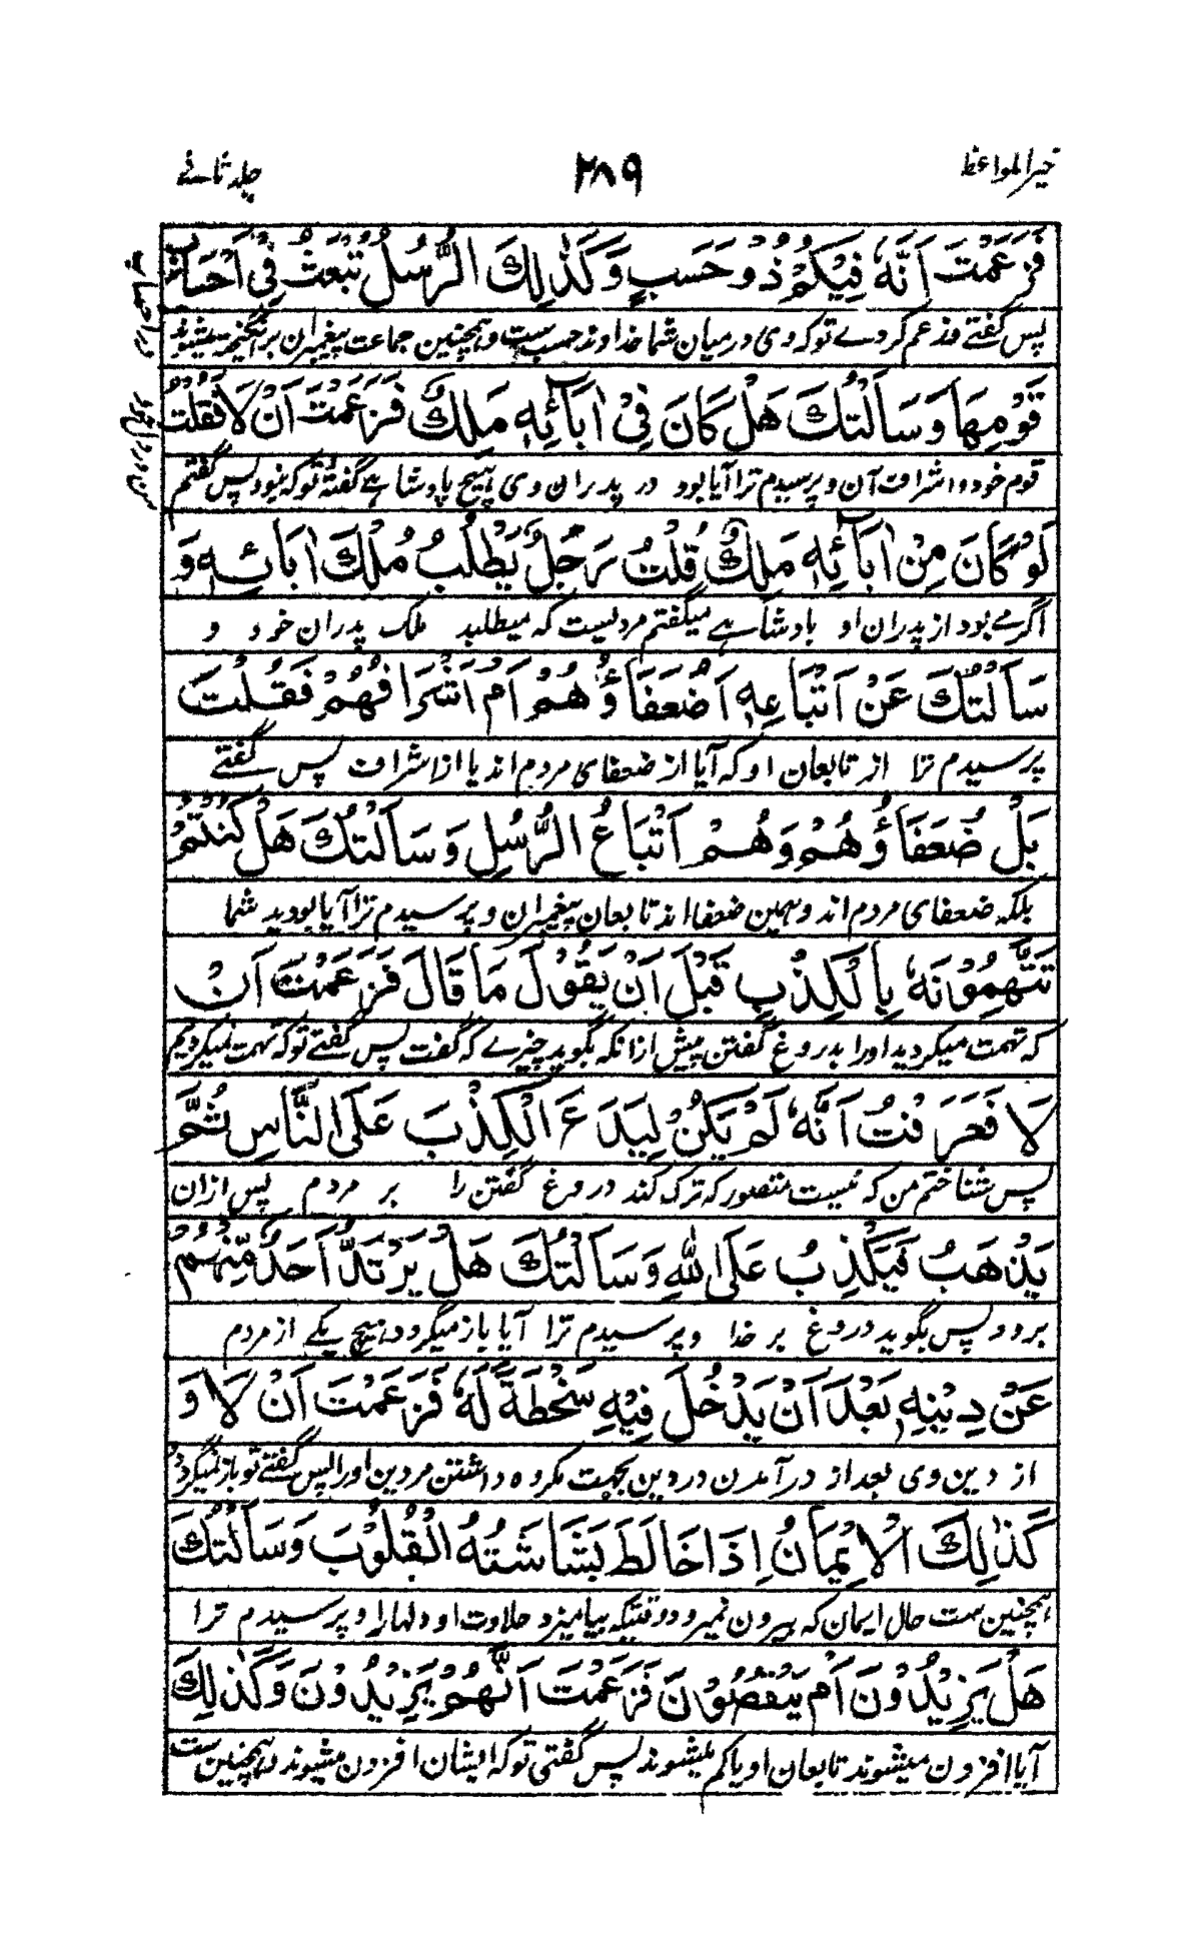 خیرالمواعظ
۲۸۹
جلد ثانے
فَزَعَمْتَ اَنَّهٗ فِیْكُمْ ذُوْ حَسَبٍ وَّكَذٰلِكَ الرُّسُلُ تُبْعَثُ فِیْۤ اَحْسَابِ
پس گفتے و زعم کردے تو کہ وی درمیان شما خداوند حسب ست و ہمچنین جماعت پیغمبران برانگیختہ میشوند
در احساب
قَوْمِهَا وَسَاَلْتُكَ هَلْ كَانَ فِیْۤ اٰبَآئِهٖ مَلِكٌ فَزَعَمْتَ اَنْ لَا فَقُلْتُ
قوم خود و اشراف آن و پرسیدم ترا آیا بود در پدران وی ہیچ پادشاہے گفتۂ تو کہ نبود پس گفتم
لَوْ كَانَ مِنْ اٰبَآئِهٖ مَلِكٌ قُلْتُ رَجُلٌ یَّطْلُبُ مُلْكَ اٰبَائِهٖ وَ
اگر مے بود از پدران او بادشاہے میگفتم مردیست کہ میطلبد ملک پدران خود و
سَاَلْتُكَ عَنْ اَتْبَاعِهٖ اَضُعَفَاؤُهُمْ اَمْ اَشْرَافُهُمْ فَقُلْتَ
پرسیدم ترا از تابعان او کہ آیا از ضعفای مردم اند یا از اشراف پس گفتے
بَلْ ضُعَفَاؤُهُمْ وَهُمْ اَتْبَاعُ الرُّسُلِ وَسَاَلْتُكَ هَلْ كُنْتُمْ
بلکہ ضعفای مردم اند و ہمین ضعفا اند تابعان پیغمبران و پرسیدم ترا آیا بودید شما
تَتَّهِمُوْنَهٗ بِالْكِذْبِ قَبْلَ اَنْ یَّقُوْلَ مَا قَالَ فَزَعَمْتَ اَنْ
کہ تہمت میکردید اورا بدروغ گفتن پیش ازانکہ بگوید چیزے کہ گفت پس گفتے تو کہ تہمت نمیکردیم
لَا فَعَرَفْتُ اَنَّهٗ لَمْ یَكُنْ لِیَدَعَ الْكِذْبَ عَلَی النَّاسِ ثُمَّ
پس شناختم من کہ نیست متصور کہ ترک کند دروغ گفتن را بر مردم پس ازان
یَذْهَبُ فَیَكْذِبُ عَلَی اللّٰهِ وَسَاَلْتُكَ هَلْ یَرْتَدُّ اَحَدٌ مِّنْهُمْ
برود پس بگوید دروغ بر خدا و پرسیدم ترا آیا باز میگردد ہیچ یکے از مردم
عَنْ دِیْنِهٖ بَعْدَ اَنْ یَّدْخُلَ فِیْهِ سَخْطَةً لَهٗ فَزَعَمْتَ اَنْ لَا وَ
از دین وی بعد از درآمدن در دین بجہت مکروہ داشتن مر دین اورا پس گفتے تو باز نمیگردد
كَذٰلِكَ الْاِیْمَانُ اِذَا خَالَطَ بَشَاشَتُهُ الْقُلُوْبَ وَسَاَلْتُكَ
ہمچنین ست حال ایمان کہ بیرون نمیرود وقتیکہ بیامیزد حلاوت او دلہارا و پرسیدم ترا
هَلْ یَزِیْدُوْنَ اَمْ یَنْقُصُوْنَ فَزَعَمْتَ اَنَّهُمْ یَزِیْدُوْنَ وَكَذٰلِكَ
آیا افزون میشوند تابعان او یا کم میشوند پس گفتی تو کہ ایشان افزون میشوند و ہمچنین ست